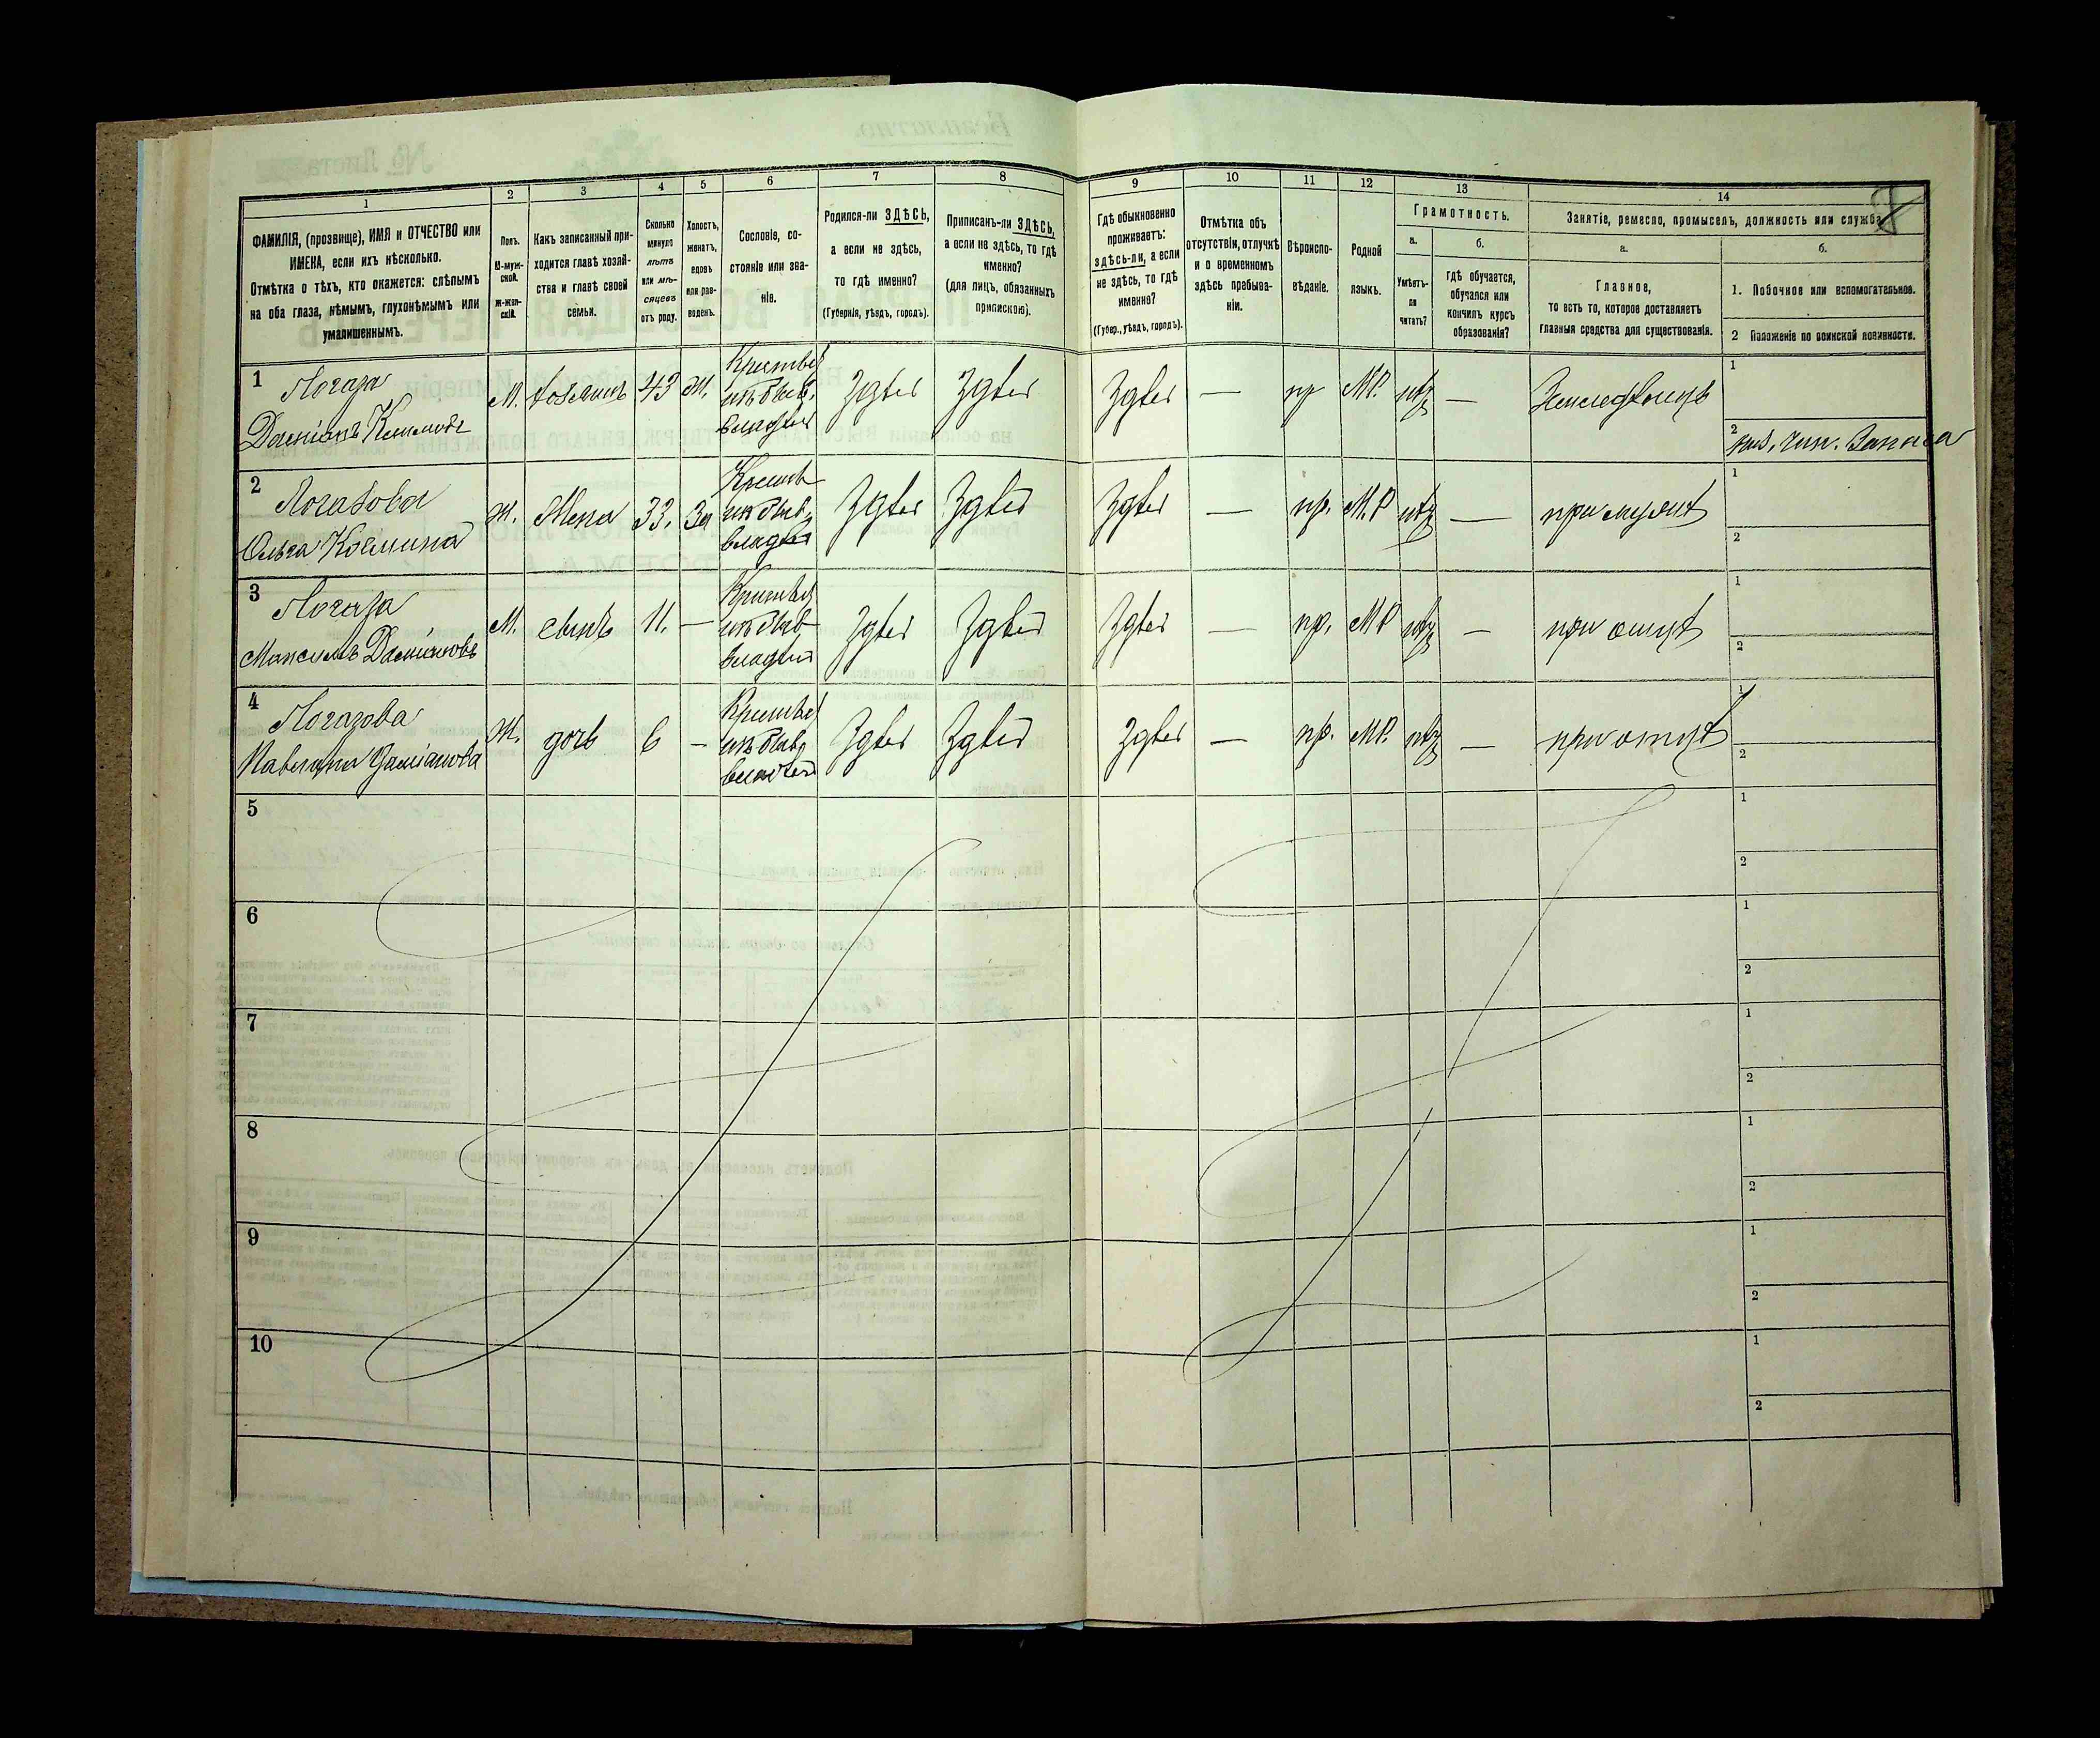 1 2 3 4 5 6 7 8 9 10 11 12 13 14
ФАМИЛІЯ, (прозвище), ИМЯ и ОТЧЕСТВО или
ИМЕНА, если ихъ нѣсколько.
Отмѣтка о тѣхъ, кто окажется: слѣпымъ
на оба глаза, нѣмымъ, глухонѣмымъ или
умалишеннымъ.
Полъ.
М-муж-
ской.
ж-жен-
скій.
Какъ записанный при-
ходится главѣ хозяй-
ства и главѣ своей
семьи.
Сколько
минуло
лѣтъ
или мѣ-
сяцевъ
отъ роду.
Холостъ,
женатъ,
вдовъ
или раз-
веденъ.
Сословіе, со-
стояніе или зва-
ніе.
Родился-ли ЗДѢСЬ,
а если не здѣсь,
то гдѣ именно?
(Губернія, уѣздъ, городъ).
Приписанъ-ли ЗДѢСЬ,
а если не здѣсь, то гдѣ
именно?
(для лицъ, обязанныхъ
припискою).
Гдѣ обыкновенно
проживаетъ:
здѣсь-ли, а если
не здѣсь, то гдѣ
именно?
(Губер., уѣздъ, городъ).
Отмѣтка объ
отсутствіи, отлучкѣ
и о временномъ
здѣсь пребыва-
ніи.
Вѣроиспо-
вѣданіе.
Родной
языкъ.
Грамотность.
а.
Умѣетъ-
ли
читать?
б.
гдѣ обучается,
обучался или
кончилъ курсъ
образованія?
Занятіе, ремесло, промыселъ, должность или служба
а.
Главное,
то есть то, которое доставляетъ
главныя средства для существованія.
б.
1. Побочное или вспомогательное.
2 Положеніе по воинской повинности.
1 Логаза
Даміанъ
М. хозяинъ 43 Ж.
Здѣсь Здѣсь Здѣсь — пр М.Р. нѣ —
1
2
2 Логазова
Ольга Космина
Ж. Жена 33. За
Здѣсь Здѣсь Здѣсь — пр. М.Р нѣ — при мужѣ
1
2
3 Логаза
Максимъ Даміановъ
М. сынъ 11. —
Здѣсь Здѣсь Здѣсь — пр. М.Р нѣ — при отцѣ
1
2
4 Логазова
Даміанова
Ж. дочь 6 —
Здѣсь Здѣсь Здѣсь — пр. М.Р. нѣ — при отцѣ
1
2
5
1
2
6
1
2
7
1
2
8
1
2
9
1
2
10
1
2